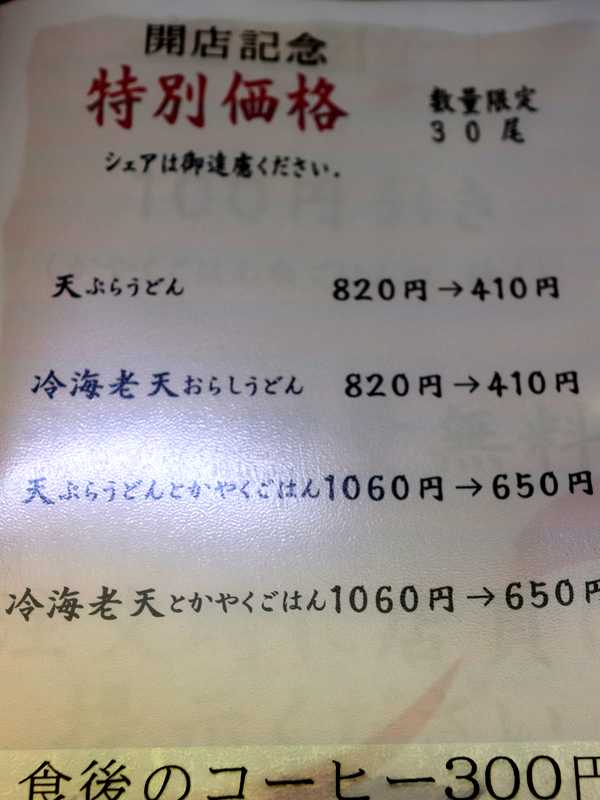 開店記念
特別価格
数量限定
30尾
シェアは御遠慮ください.
天ぷらうどん 820円→410円
冷海老天おらしうどん 820円→410円
天ぷらうどんとかやくごはん1060円→650円
冷海老天とかやくごはん1060円→650円
食後のコーヒー300円